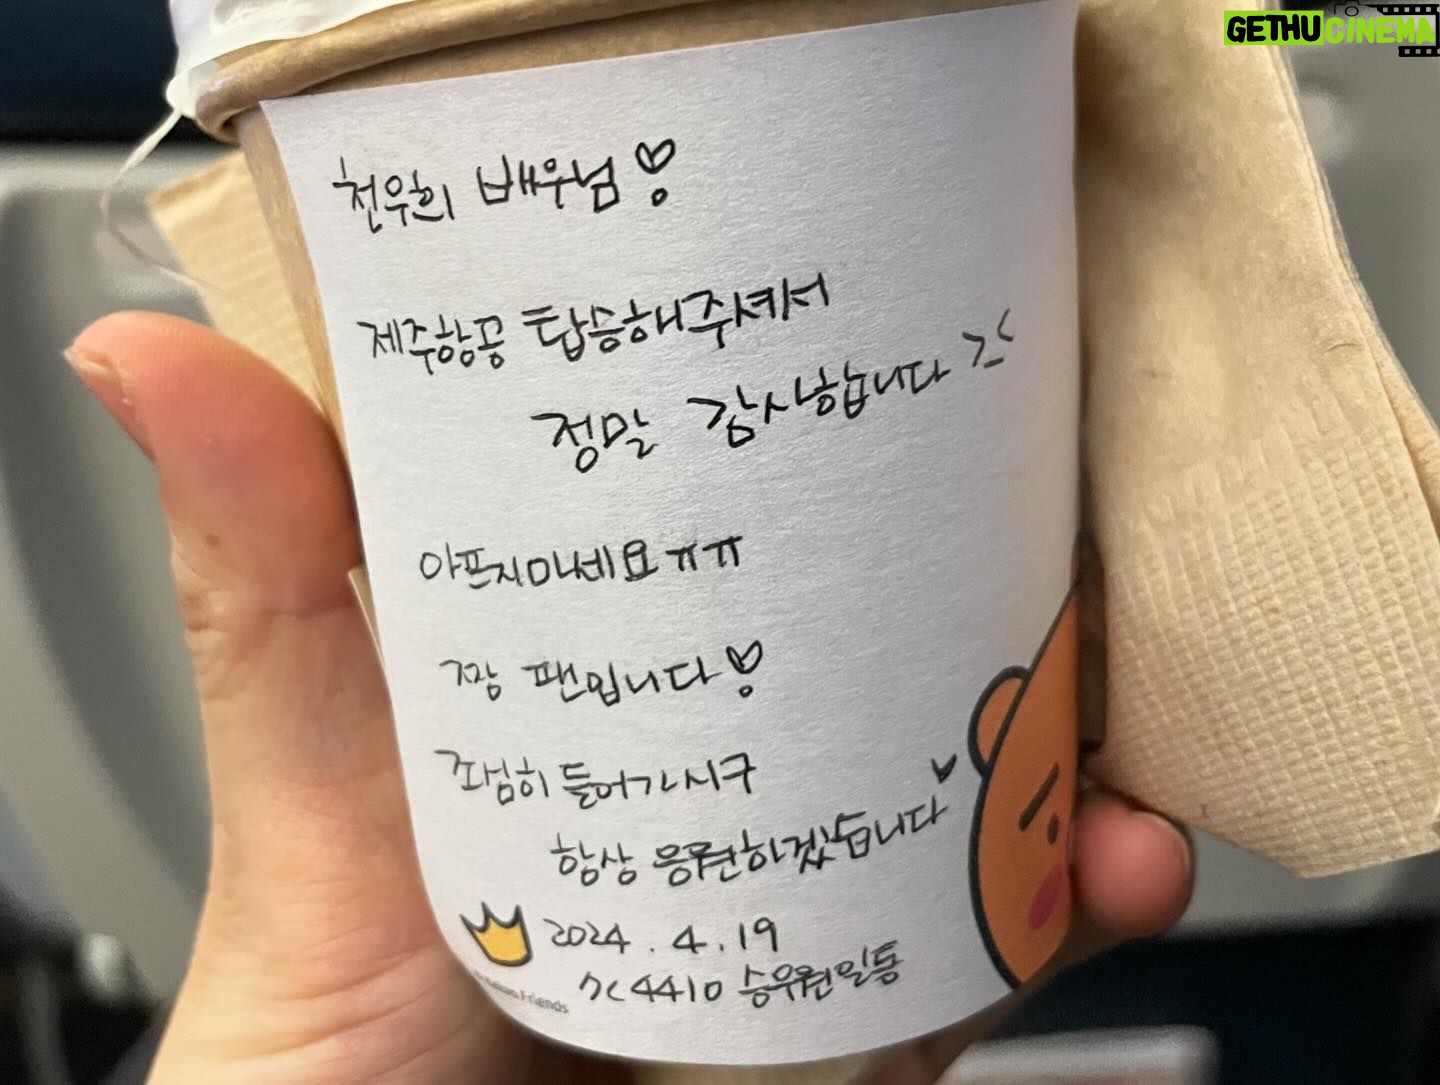 GETHUCINEMA
천우희 배우님♡
제주항공 탑승해주셔서
정말 감사합니다 ><
아프지마세요ㅠㅠ
짱 팬입니다♡
조심히 들어가시구
항상 응원하겠습니다♡
2024.4.19
7C4410 승무원일동
Kakao Friends